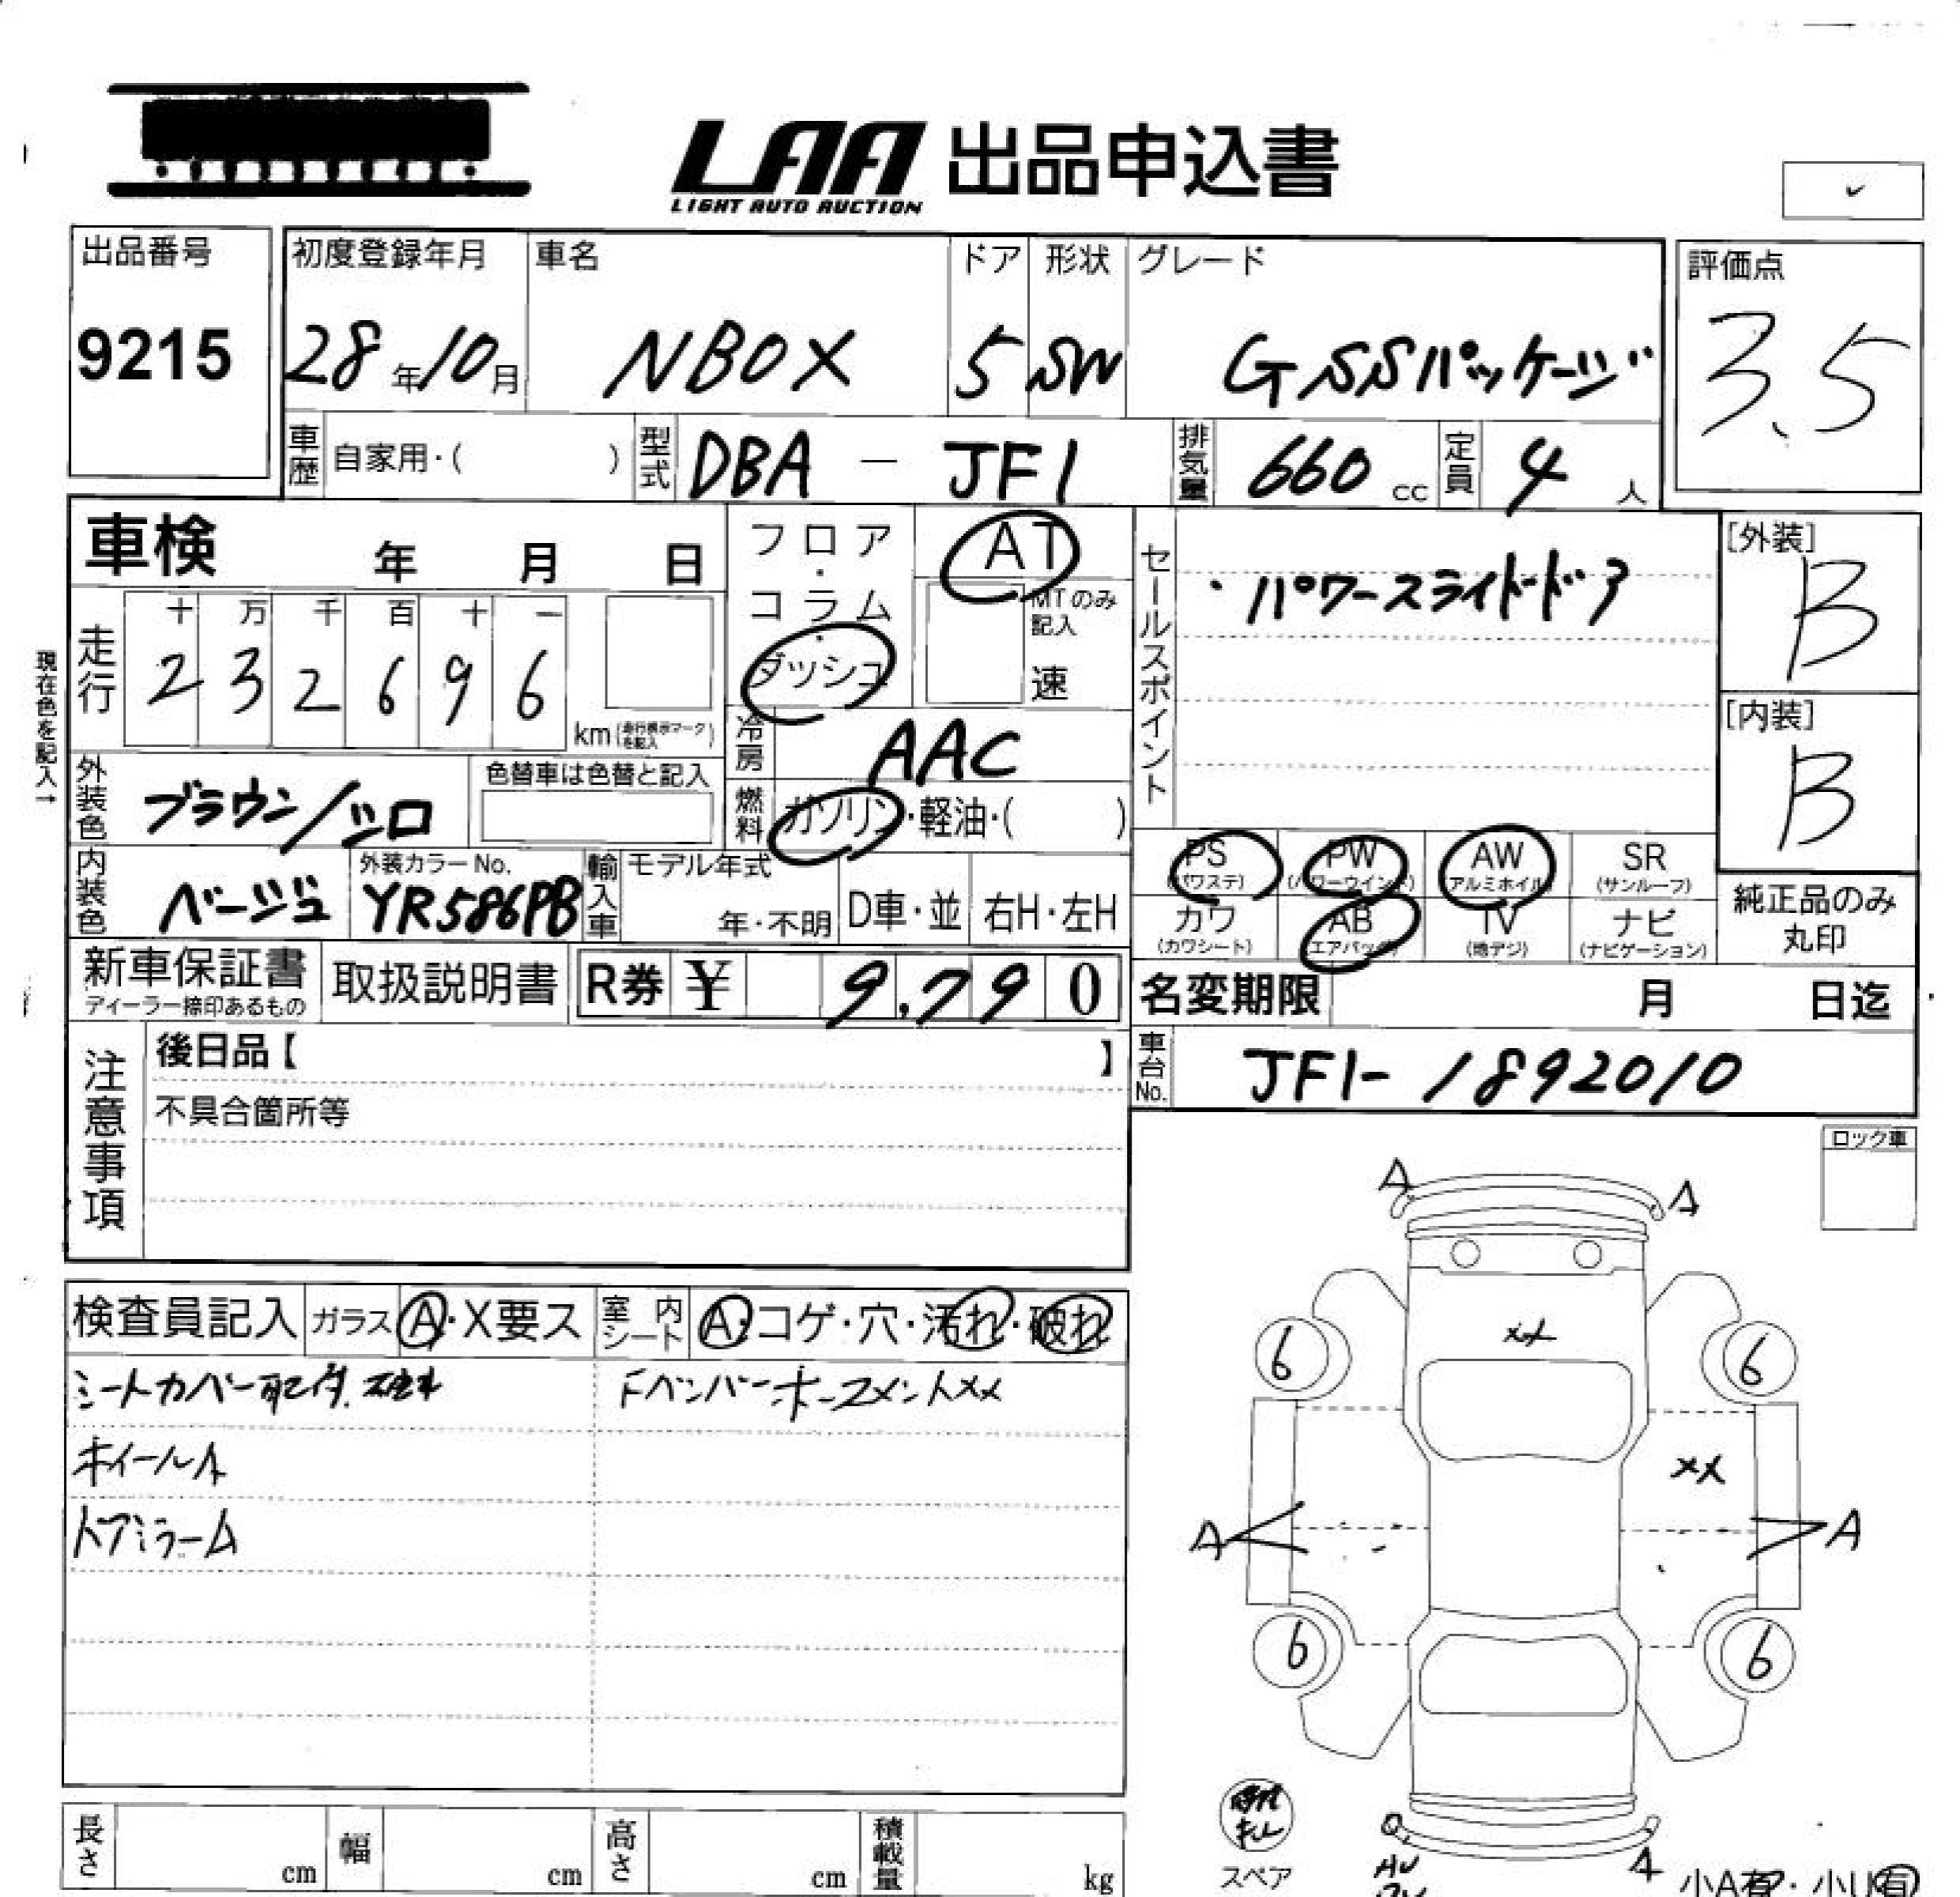 LAA 出品申込書
LIGHT AUTO AUCTION
出品番号
9215
初度登録年月 車名 ドア 形状 グレード
28年10月 NBOX 5 SW G SSパッケージ
評価点
3.5
車歴 自家用・( ) 型式 DBA - JF1 排気量 660 cc 定員 4 人
車検 年 月 日
フロア・コラム・ダッシュ
AT
MTのみ記入
速
セールスポイント
・パワースライドドア
[外装]
B
[内装]
B
現在色を記入→
走行 十 万 千 百 十 一
2 3 2 6 9 6
km (走行表示マークを記入)
冷房 AAC
外装色 ブラウン/シロ
色替車は色替と記入
燃料 ガソリン・軽油・( )
内装色 ベージュ
外装カラーNo.
YR586PB
輸入車 モデル年式
年・不明 D車・並 右H・左H
PS (パワステ) PW (パワーウインド) AW (アルミホイル) SR (サンルーフ)
カワ (カワシート) AB (エアバッグ) TV (地デジ) ナビ (ナビゲーション)
純正品のみ丸印
新車保証書
ディーラー捺印あるもの
取扱説明書 R券 ¥ 9,790
名変期限 月 日迄
注意事項
後日品【 】
不具合箇所等
車台No. JF1-1892010
ロック車
検査員記入 ガラス A・X要ス 室内シート A・コゲ・穴・汚れ・破れ
シートカバー取付
FバンパーホースメントXX
ホイールA
ドアミラーA
A A
XX
6 6
XX
A A
6 6
スペア
A
小A有・小U有
長さ cm 幅 cm 高さ cm 積載量 kg